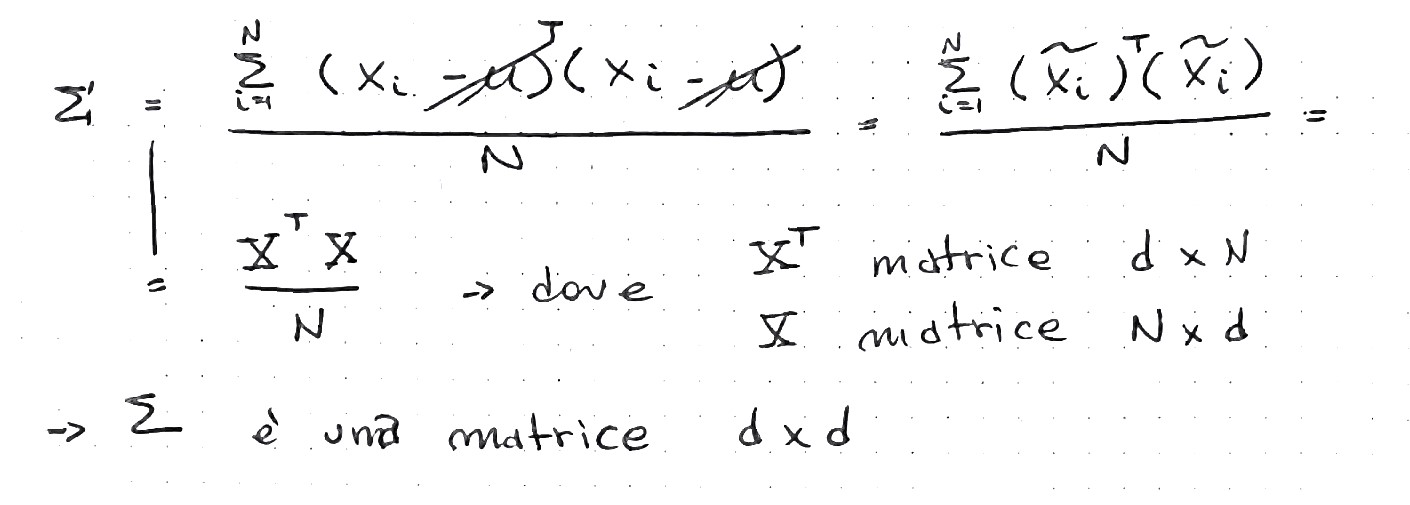 Σ' = \frac{\sum_{i=1}^{N} (x_i - μ)^T (x_i - μ)}{N} = \frac{\sum_{i=1}^{N} (\tilde{x}_i)^T (\tilde{x}_i)}{N} =
= \frac{X^T X}{N} → dove X^T matrice d x N
X matrice N x d
→ Σ è una matrice d x d